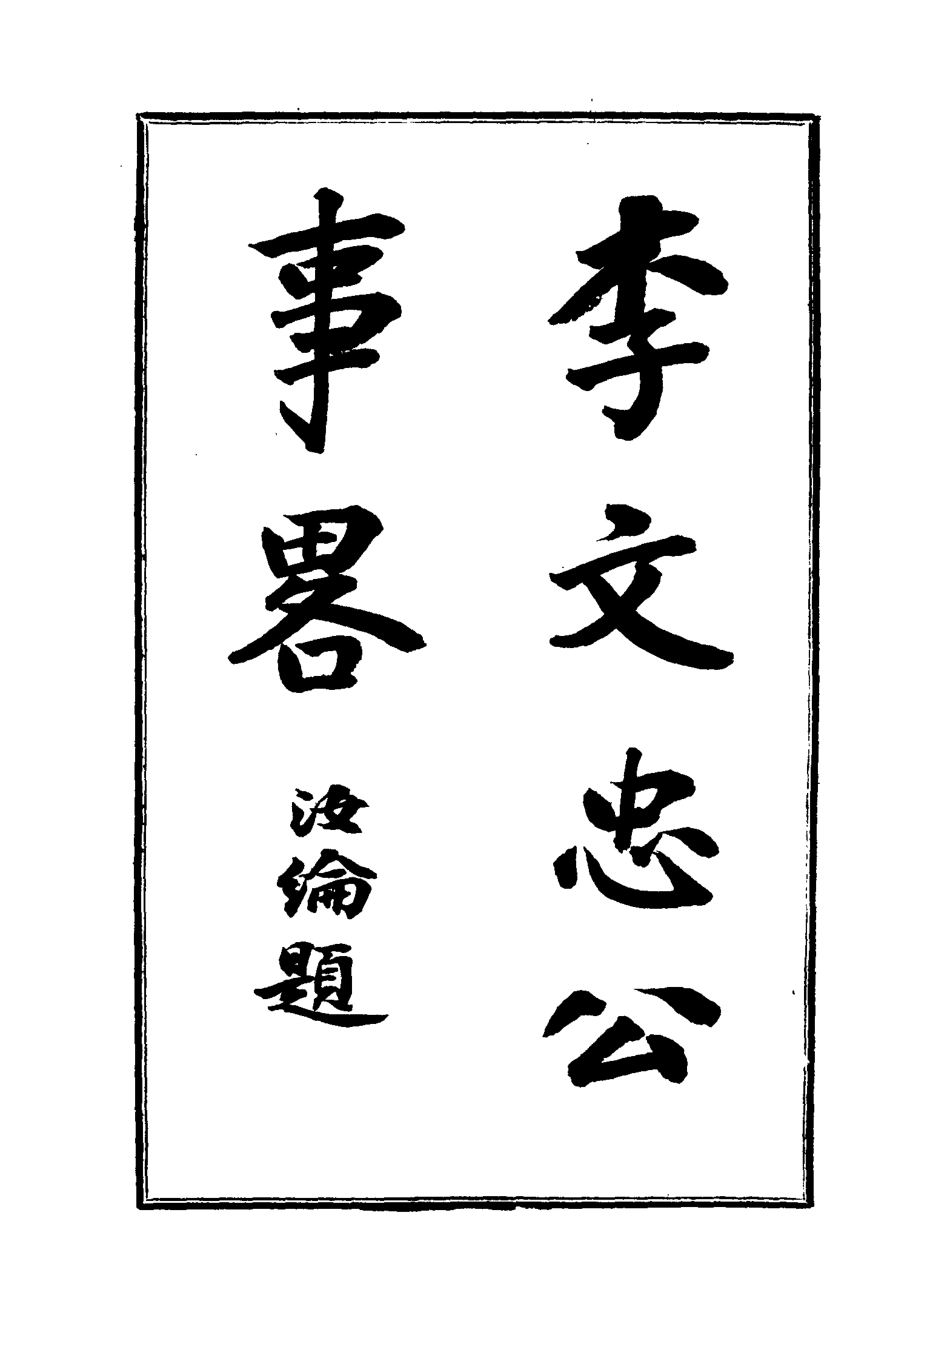 李文忠公
事畧
汝綸題